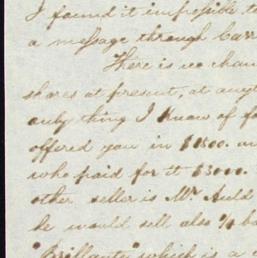 I found it impossible to
a message through Carr
There is no chan
shares at present, at any
only thing I know of fo
offered you in $1500. an
who paid for it $3000.
other seller is Mr Auld
he would sell also 1/4 ba
"Brillante" which is a